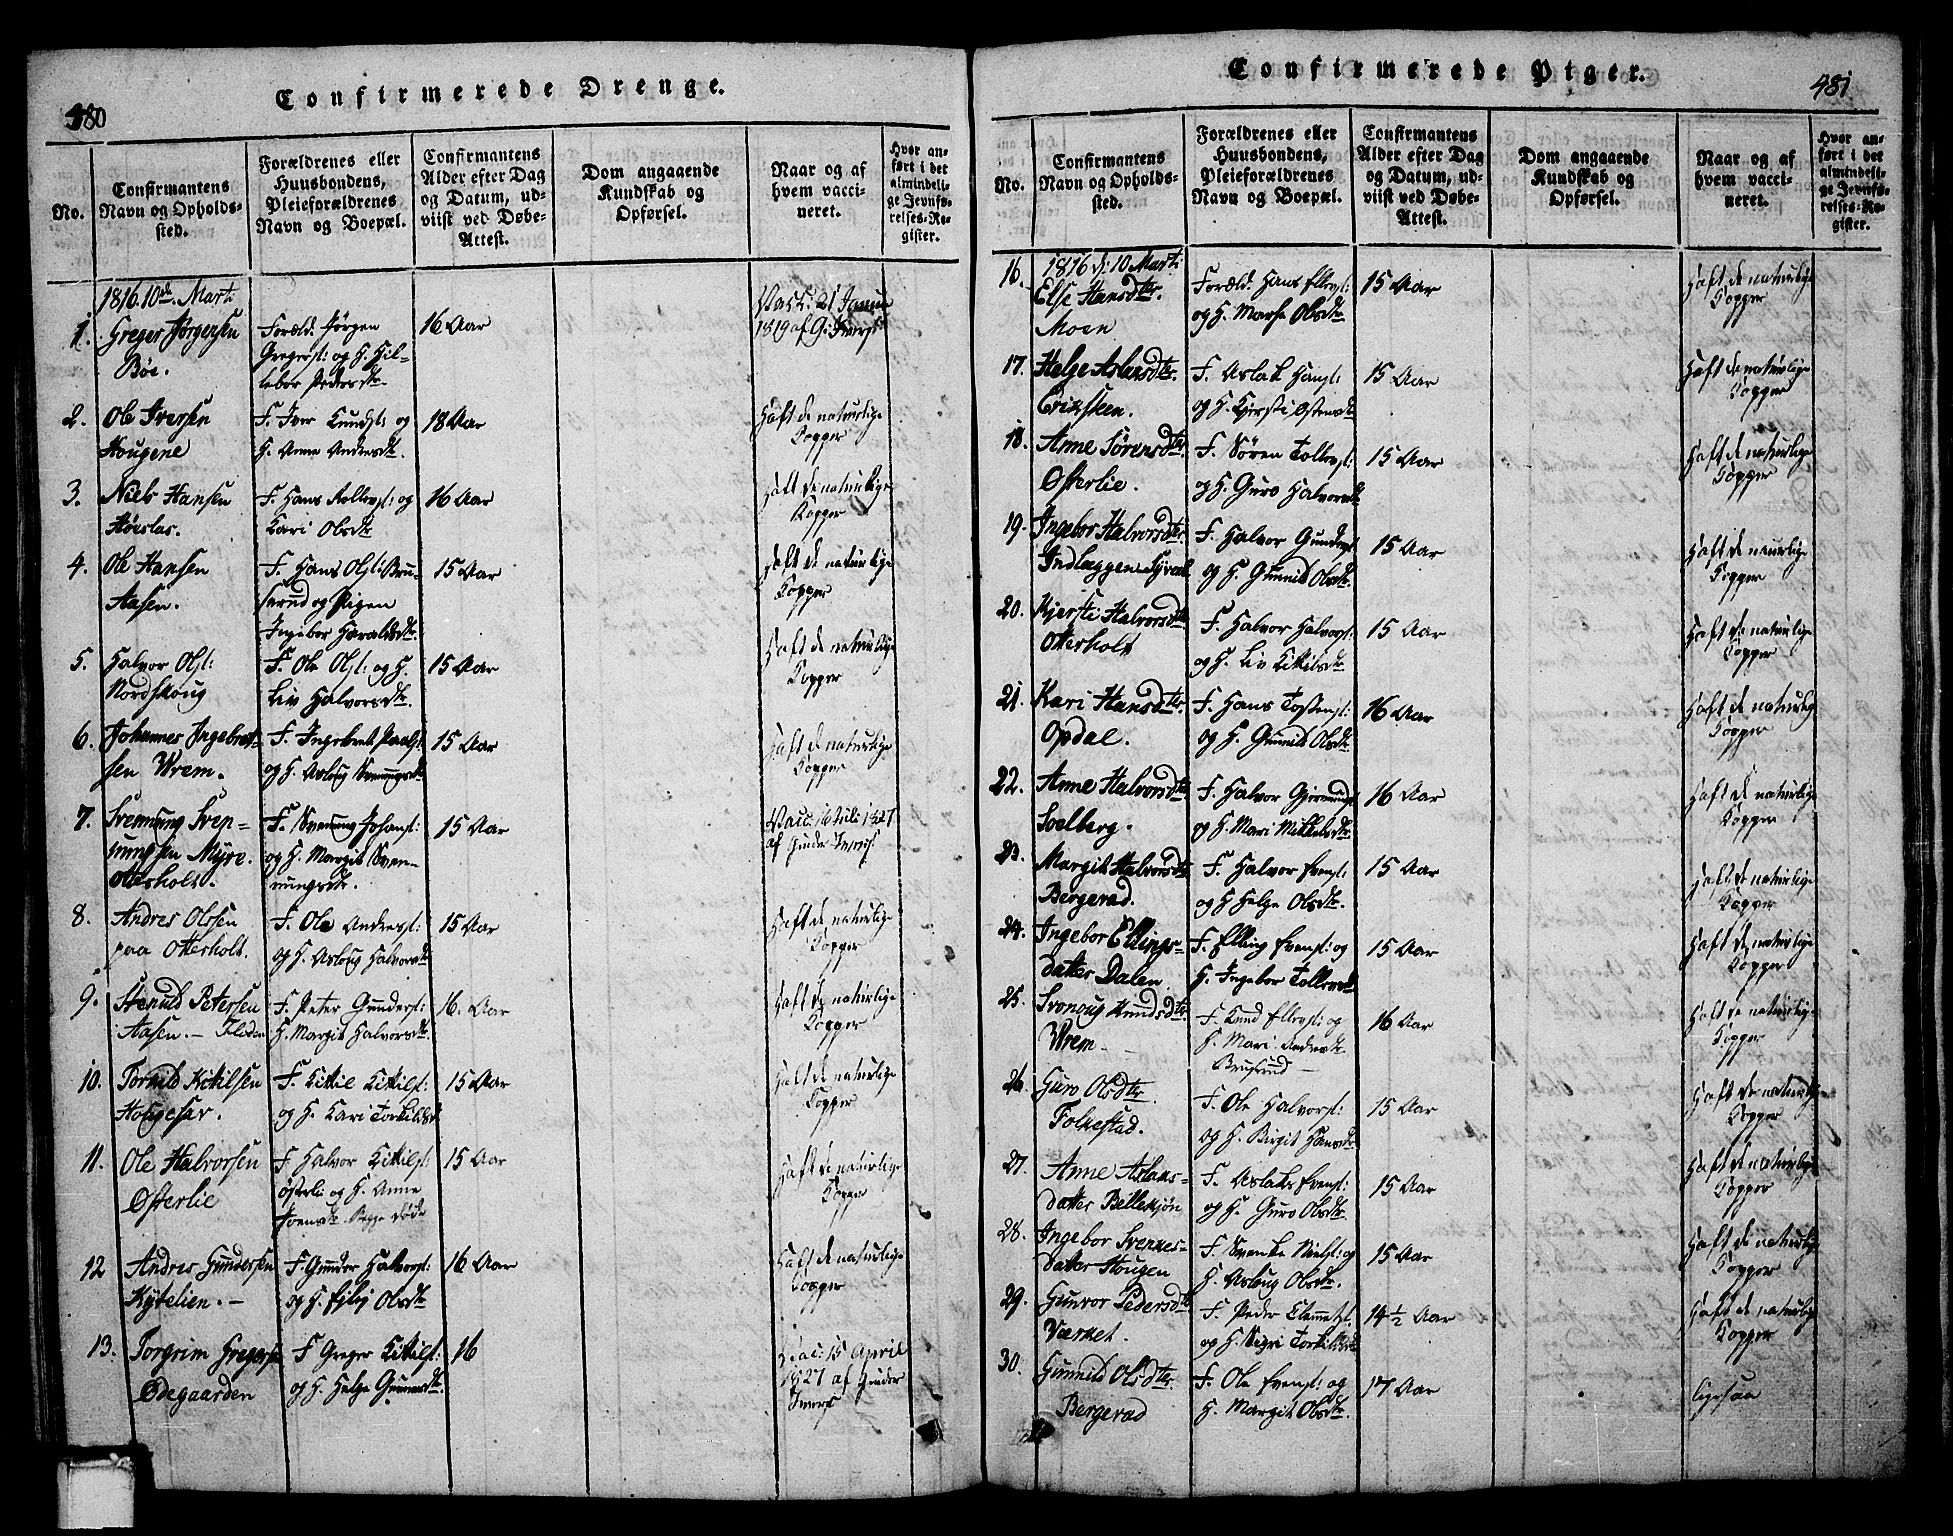 Confirmerede Drenge.
480
No.
Confirmantens Navn og Opholdssted.
Forældrenes eller Huusbondens, Pleieforældrenes Navn og Boepæl.
Confirmantens Alder efter Dag og Datum, udviist ved Døbe-Attest.
Dom angaaende Kundskab og Opførsel.
Naar og af hvem vaccineret.
Hvor anført i det almindelige Jevnførelses-Register.
1816. 10de Marti
1. Greger Jørgersen Böe.
Foræld. Jörgen Gregersl: og H. Hillebor Pedersdtr
16 Aar
1819 af G: Iversl
2. Ole Iversen Hougene
F. Iver Knudsl: og H. Anne Andersdtr.
18 Aar
Haft de naturlige Kopper
3. Niels Hansen
F. Hans og Kari Olsdtr
16 Aar
Haft de naturlige Kopper
4. Ole Hansen Aasen.
F. Hans Olsl: Bruserud og Pigen Ingebor Haraldsdtr.
15 Aar
Haft de naturlige Kopper
5. Halvor Olsl: Nordskoug
F. Ole Olsl: og H. Liv Halvorsdtr.
15 Aar
Haft de naturlige Kopper
6. Johannes Ingebretsen Wrem.
F. Ingebret Paalsl og H. Asloug Svenungsdtr
15 Aar
Haft de naturlige Kopper
7. Svennung Svennungsen Myre. Otterholt.
F. Svenung Johansl: og H. Margit Svennungsdtr.
15 Aar
Vacc: 16 1827 af Gunder Iversl.
8. Andres Olssen paa Otterholt.
F. Ole Andersl: og H. Asloug Halvorsdtr
15 Aar
Haft de naturlige Kopper
9. Petersen Aasen. –
F. Peter Gundersl: H. Margit Halvorsdtr.
16. Aar
Haft de naturlige Kopper
10. Torkild Kittilsen
F. Kittil Kittilsl: og H. Kari Torkildsdtr
15 Aar
Haft de naturlige Kopper
11. Ole Halvorsen Østerlie
F Halvor Kittilsl: Østerli og H. Anne Joensdtr. Begge Døde
15 Aar
Haft de naturlige Kopper
12 Andres Gundersen Kytelien. –
F. Gunder Halvorsl: og H. Olsdtr
16 Aar
Haft de naturlige Kopper
13. Torgrim Gregersen Ødegaarden
F Greger Kittilsl: og H. Helge Gunnersdtr.
16
Vac: 15 April 1827 af Gunder Iversl
Confirmerede Piger.
481
No.
Confirmantens Navn og Opholdssted.
Forældrenes eller Huusbondens, Pleieforældrenes Navn og Boepæl.
Confirmantens Alder efter Dag og Datum, udviist ved Døbe-Attest.
Dom angaaende Kundskab og Opførsel.
Naar og af hvem vaccineret.
Hvor anført i det almindelige Jevnførelses-Register.
1816 d: 10 Marti
16. Else Hansdtr. Moen
Foræld. Hans Ellevsl: og H. Marthe Olsdtr.
15 Aar
Haft de naturlige Kopper
17. Helge Aslaksdtr. Eriksteen.
F. Aslak Hansl: og H. Kjersti Ostensdtr
15 Aar
Haft de naturlige Kopper
18. Anne Sörensdtr. Østerlie.
F. Sören Tollevsl: og H. Guro Halvorsdtr
15 Aar
Haft de naturlige Kopper
19. Ingebor Halvorsdtr.
F. Halvor Gundersl og H. Gunnild Olsdtr
15 Aar
Haft de naurlige Kopper
20. Kjersti Halvorsdtr. Otterholt
F. Halvor Halvorsl: og H. Liv Kittilsdtr
15 Aar
Haft de naturlige Kopper
21. Kari Hansdtr. Opdal.
F. Hans Tostensl: og H. Gunnild Olsdtr
16 Aar
Haft de naturlig Kopper
22. Anne Halvorsdtr Soelberg.
F. Halvor og H. Mari Mikkelsdtr.
16 Aar
Haft de naturlige Kopper
23. Margit Halvorsdtr Bergerud.
F. Halvor Evensl: og H Helge Olsdtr.
15 Aar
Haft de naturlige Kopper
24. Ingebor Ellingsdatter Dalen.
F. Elling Evensl: og H. Ingebor Tollevsdtr
15 Aar
Haft de naturlige Kopper
25. Svonoug Knudsdtr. Wrem –
F. Knud Ellevsl: og H. Mari Andersdtr Bruserud –
16 Aar
Haft de naturlige Kopper
26. Guro Olsdtr. Folkestad.
F. Ole Halvorsl: og H. Birgit Hansdtr
15 Aar
Haft de naturlige Kopper
27. Anne Aslaksdatter Bellekjön
F. Aslak Evensl: og H. Guro Olsdtr.
15 Aar
Haft de naturlige Kopper
28. Ingebor Svenkesdatter Hougen
F. Svenke Nielsl: og H. Aslaug Olsdtr.
15 Aar
Haft de naturlig Kopper
29. Gunvor Pedersdtr Værket.
F. Peder Clemetsl. og H. Sigri Torkildsdtr
14½ Aar
Haft de naturlige Kopper
30. Gunnild Olsdtr. Bergerud
F. Ole Evensl: og H. Margit Olsdtr.
17 Aar
ligesaa